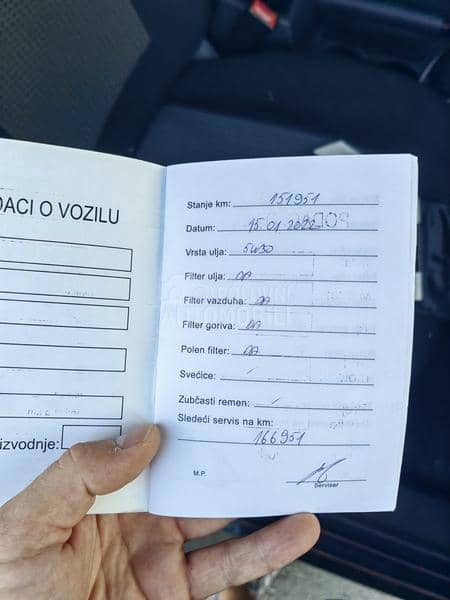 DACI O VOZILU
izvodnje:
Stanje km: 151951
Datum: 15.01.2022
Vrsta ulja: 5W30
Filter ulja: DA
Filter vazduha: DA
Filter goriva: DA
Polen filter: DA
Svećice: /
Zubčasti remen: /
Sledeći servis na km:
166951
M.P.
Serviser